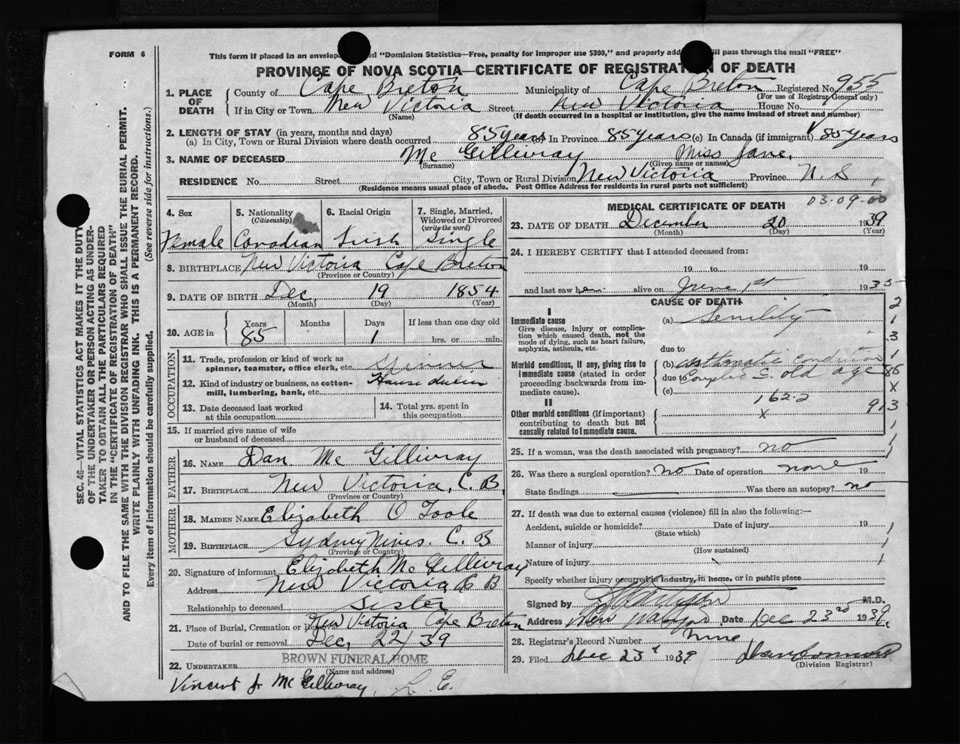 FORM 6
This form if placed in an envelope "Dominion Statistics—Free, penalty for improper use $300," and properly will pass through the mail "FREE"
PROVINCE OF NOVA SCOTIA—CERTIFICATE OF REGISTRATION OF DEATH
1. PLACE OF DEATH County of Cape Breton Municipality of Cape Breton Registered No. 955
(For use of Registrar General only)
If in City or Town New Victoria Street New Victoria House No.
(Name) (If death occurred in a hospital or institution, give the name instead of street and number)
2. LENGTH OF STAY (in years, months and days)
(a) In City, Town or Rural Division where death occurred 85 years In Province 85 years (c) In Canada (if immigrant) 85 years
3. NAME OF DECEASED Mc Gillivray Miss Jane,
(Surname) (Given name or names)
RESIDENCE No. Street City, Town or Rural Division New Victoria Province N. S.
(Residence means usual place of abode. Post Office Address for residents in rural parts not sufficient)
03-09-00
4. Sex 5. Nationality (Citizenship) 6. Racial Origin 7. Single, Married, Widowed or Divorced (write the word)
Female Canadian Irish Single
8. BIRTHPLACE New Victoria Cape Breton
(Province or Country)
9. DATE OF BIRTH Dec. 19 1854
(Month) (Day) (Year)
10. AGE in Years Months Days If less than one day old
85 1 hrs. or min.
OCCUPATION
11. Trade, profession or kind of work as spinner, teamster, office clerk, etc.
12. Kind of industry or business, as cotton-mill, lumbering, bank, etc.
13. Date deceased last worked at this occupation
14. Total yrs. spent in this occupation
15. If married give name of wife or husband of deceased
FATHER
16. NAME Dan Mc Gillivray
17. BIRTHPLACE New Victoria, C. B.
(Province or Country)
MOTHER
18. MAIDEN NAME Elizabeth O Toole
19. BIRTHPLACE Sydney Mines. C. B
(Province or Country)
20. Signature of informant Elizabeth Mc Gillivray
Address New Victoria C B
Relationship to deceased Sister
21. Place of Burial, Cremation or Removal New Victoria Cape Breton
Date of burial or removal Dec, 22/39
BROWN FUNERAL HOME
22. UNDERTAKER
(Name and address)
Vincent Jr Mc Gillivray,
MEDICAL CERTIFICATE OF DEATH
23. DATE OF DEATH December 20 1939
(Month) (Day) (Year)
24. I HEREBY CERTIFY that I attended deceased from:
19 to 19
and last saw her alive on June 1st 1935
CAUSE OF DEATH
I
Immediate cause (a) Senility
Give disease, injury or complication which caused death, not the mode of dying, such as heart failure, asphyxia, asthenia, etc.
due to
Morbid conditions, if any, giving rise to immediate cause (stated in order proceeding backwards from immediate cause).
(b) Asthmatic condition
due to Coupled c̄ old age
(c)
162-2
II
Other morbid conditions (if important) contributing to death but not causally related to immediate cause. x
25. If a woman, was the death associated with pregnancy? no
26. Was there a surgical operation? no Date of operation none 19
State findings Was there an autopsy? no
27. If death was due to external causes (violence) fill in also the following:—
Accident, suicide or homicide? Date of injury 19
(State which)
Manner of injury
(How sustained)
Nature of injury
Specify whether injury occurred in industry, in home, or in public place
Signed by M.D.
Address New Waterford Date Dec 23rd 1939.
28. Registrar's Record Number nine
29. Filed Dec 23rd 1939
(Division Registrar)
SEC. 46—VITAL STATISTICS ACT MAKES IT THE DUTY OF THE UNDERTAKER OR PERSON ACTING AS UNDERTAKER TO OBTAIN ALL THE PARTICULARS REQUIRED IN THE "CERTIFICATE OF REGISTRATION OF DEATH" AND TO FILE THE SAME WITH THE DIVISION REGISTRAR WHO SHALL ISSUE THE BURIAL PERMIT.
WRITE PLAINLY WITH UNFADING INK. THIS IS A PERMANENT RECORD.
Every item of information should be carefully supplied. (See reverse side for instructions.)